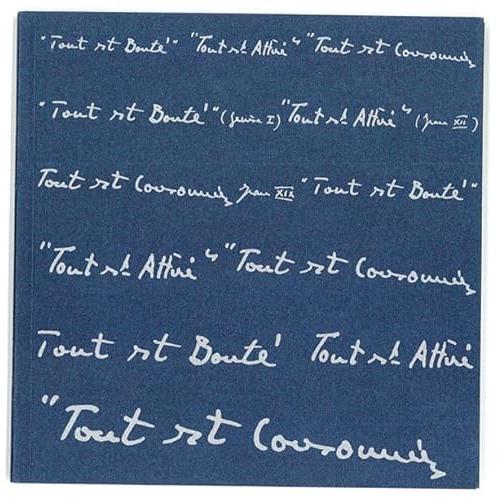 "Tout est Bonté" "Tout est Attiré" "Tout est Consommé
"Tout est Bonté" (Genèse I) "Tout est Attiré" (Jean XII)
Tout est Consommé Jean XIX "Tout est Bonté"
"Tout est Attiré" "Tout est Consommé
Tout est Bonté Tout est Attiré
"Tout est Consommé